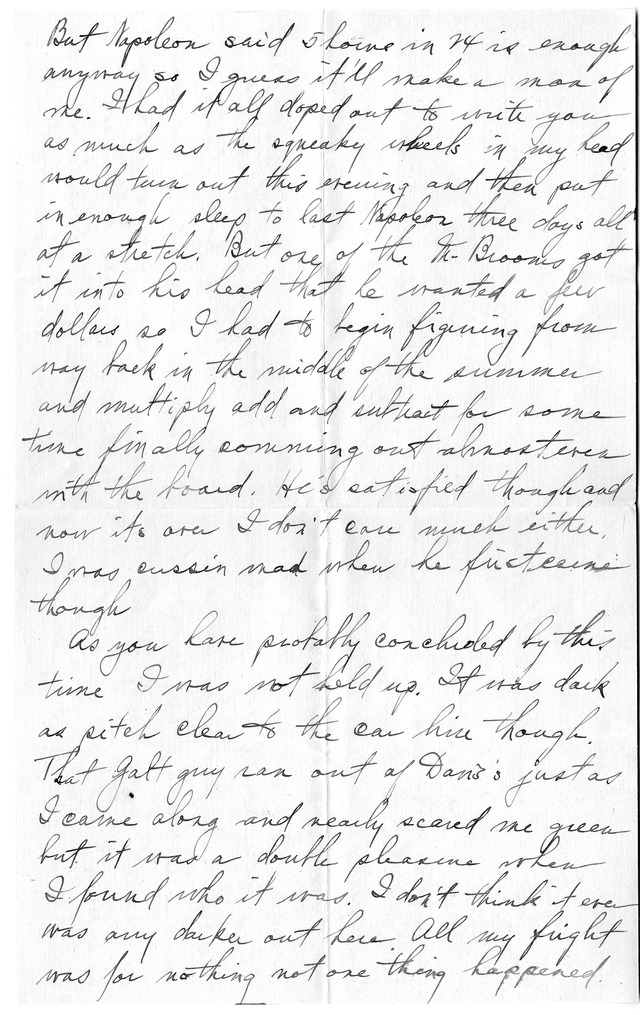 But Napoleon said 5 hours in 24 is enough
anyway so I guess it'll make a man of
me. I had it all doped out to write you
as much as the squeaky wheels in my head
would turn out this evening and then put
in enough sleep to last Napoleon three days all
at a stretch. But one of the Mr Brooms got
it into his head that he wanted a few
dollars so I had to begin figuring from
way back in the middle of the summer
and multiply add and subtract for some
time finally comming out almost even
with the board. He's satisfied though and
now its over I don't care much either.
I was cussin mad when he first came
though
As you have probably concluded by this
time I was not held up. It was dark
as pitch clear to the car line though.
That Galt guy ran out of Davis's just as
I came along and nearly scared me green
but it was a double pleasure when
I found who it was. I don't think it ever
was any darker out here. All my fright
was for nothing not one thing happened.